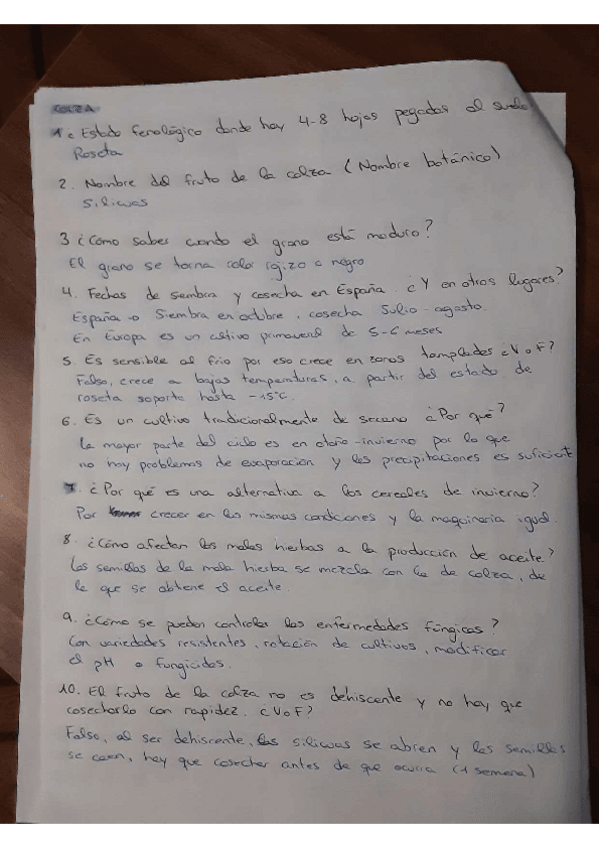 COLZA
1. Estado fenológico donde hay 4-8 hojas pegadas al suelo.
Roseta
2. Nombre del fruto de la colza (Nombre botánico)
Silicuas
3 ¿Cómo sabes cuando el grano está maduro?
El grano se torna color rojizo o negro
4. Fechas de siembra y cosecha en España. ¿Y en otros lugares?
España → Siembra en octubre, cosecha Julio-agosto.
En Europa es un cultivo primaveral de 5-6 meses
5. Es sensible al frio por eso crece en zonas templadas ¿V o F?
Falso, crece a bajas temperaturas, a partir del estado de
roseta soporta hasta -15°C.
6. Es un cultivo tradicionalmente de secano ¿Por qué?
La mayor parte del ciclo es en otoño-invierno por lo que
no hay problemas de evaporación y las precipitaciones es suficient
7. ¿Por qué es una alternativa a los cereales de invierno?
Por crecer en las mismas condiciones y la maquinaria igual.
8. ¿Cómo afectan las malas hierbas a la producción de aceite?
Las semillas de la mala hierba se mezcla con la de colza, de
la que se obtiene el aceite.
9. ¿Cómo se pueden controlar las enfermedades fúngicas?
Con variedades resistentes, rotación de cultivos, modificar
el pH o fungicidas.
10. El fruto de la colza no es dehiscente y no hay que
cosecharlo con rapidez. ¿V o F?
Falso, al ser dehiscente, las silicuas se abren y las semillas
se caen, hay que cosechar antes de que ocurra (1 semana)